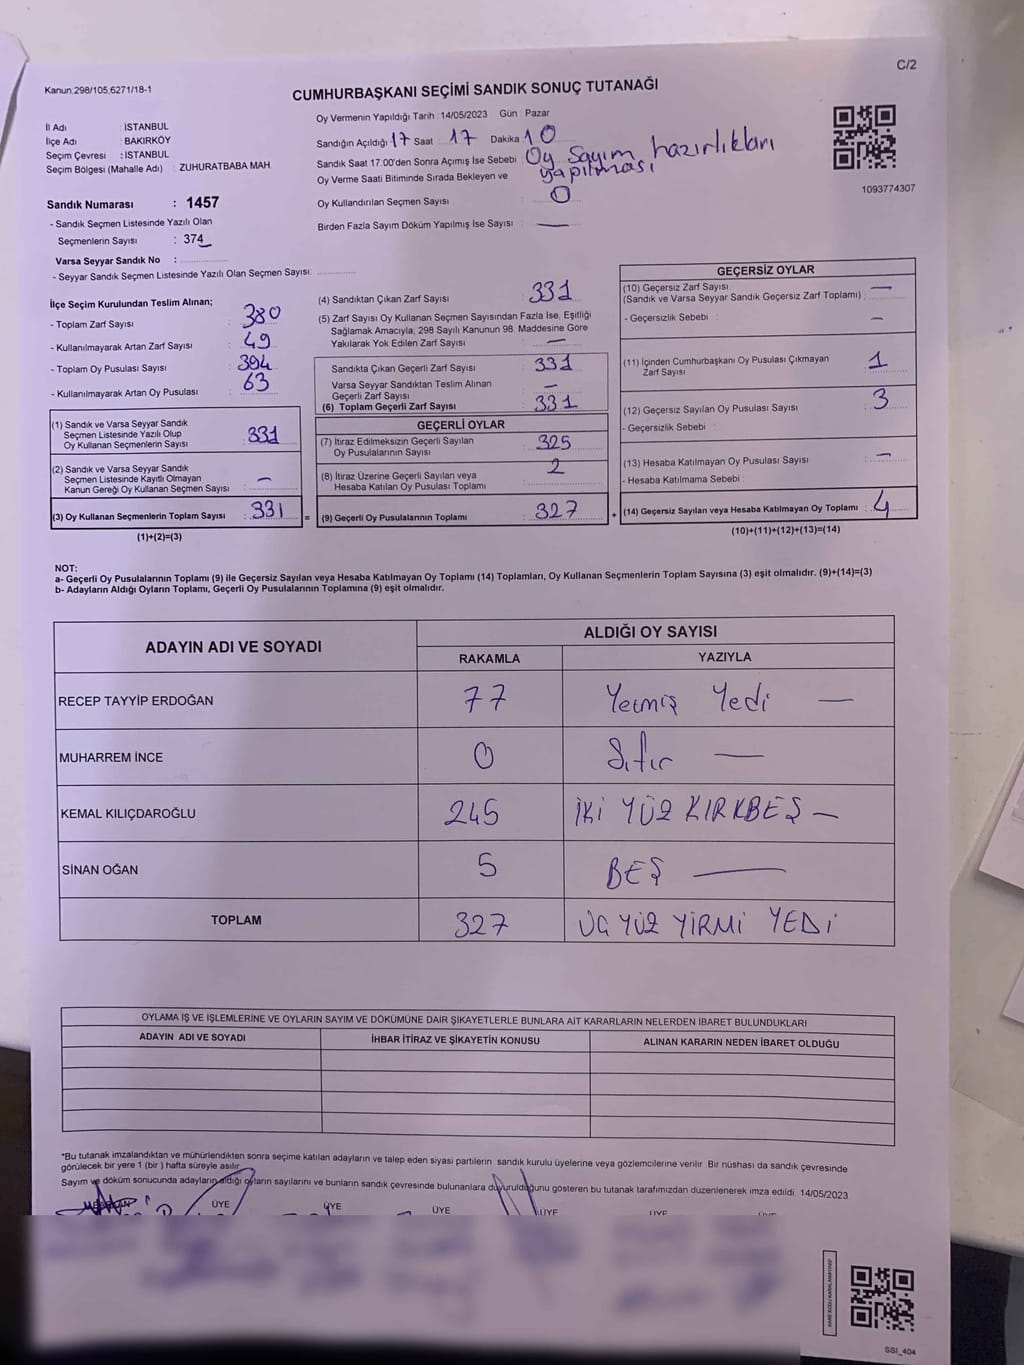 C/2
Kanun:298/105,6271/18-1
CUMHURBAŞKANI SEÇİMİ SANDIK SONUÇ TUTANAĞI
İl Adı : İSTANBUL
İlçe Adı : BAKIRKÖY
Seçim Çevresi : İSTANBUL
Seçim Bölgesi (Mahalle Adı) : ZUHURATBABA MAH.
Oy Vermenin Yapıldığı Tarih : 14/05/2023 Gün : Pazar
Sandığın Açıldığı 17 Saat : 17 Dakika 10
Sandık Saat 17.00'den Sonra Açımış İse Sebebi : Oy Sayım hazırlıkları
yapılması
Oy Verme Saati Bitiminde Sırada Bekleyen ve
Oy Kullandırılan Seçmen Sayısı : 0
Birden Fazla Sayım Döküm Yapılmış İse Sayısı : —
1093774307
Sandık Numarası : 1457
- Sandık Seçmen Listesinde Yazılı Olan
Seçmenlerin Sayısı : 374
Varsa Seyyar Sandık No :
- Seyyar Sandık Seçmen Listesinde Yazılı Olan Seçmen Sayısı:
İlçe Seçim Kurulundan Teslim Alınan;
- Toplam Zarf Sayısı : 380
- Kullanılmayarak Artan Zarf Sayısı : 49
- Toplam Oy Pusulası Sayısı : 394
- Kullanılmayarak Artan Oy Pusulası : 63
(1) Sandık ve Varsa Seyyar Sandık
Seçmen Listesinde Yazılı Olup
Oy Kullanan Seçmenlerin Sayısı : 331
(2) Sandık ve Varsa Seyyar Sandık
Seçmen Listesinde Kayıtlı Olmayan
Kanun Gereği Oy Kullanan Seçmen Sayısı : —
(3) Oy Kullanan Seçmenlerin Toplam Sayısı : 331
(1)+(2)=(3)
(4) Sandıktan Çıkan Zarf Sayısı : 331
(5) Zarf Sayısı Oy Kullanan Seçmen Sayısından Fazla İse, Eşitliği
Sağlamak Amacıyla; 298 Sayılı Kanunun 98. Maddesine Göre
Yakılarak Yok Edilen Zarf Sayısı : —
Sandıkta Çıkan Geçerli Zarf Sayısı : 331
Varsa Seyyar Sandıktan Teslim Alınan
Geçerli Zarf Sayısı : —
(6) Toplam Geçerli Zarf Sayısı : 331
GEÇERLİ OYLAR
(7) İtiraz Edilmeksizin Geçerli Sayılan
Oy Pusulalarının Sayısı : 325
(8) İtiraz Üzerine Geçerli Sayılan veya
Hesaba Katılan Oy Pusulası Toplamı : 2
= (9) Geçerli Oy Pusulalarının Toplamı : 327
GEÇERSİZ OYLAR
(10) Geçersiz Zarf Sayısı : —
(Sandık ve Varsa Seyyar Sandık Geçersiz Zarf Toplamı) :
- Geçersizlik Sebebi : —
(11) İçinden Cumhurbaşkanı Oy Pusulası Çıkmayan
Zarf Sayısı : 1
(12) Geçersiz Sayılan Oy Pusulası Sayısı : 3
- Geçersizlik Sebebi :
(13) Hesaba Katılmayan Oy Pusulası Sayısı : —
- Hesaba Katılmama Sebebi :
+ (14) Geçersiz Sayılan veya Hesaba Katılmayan Oy Toplamı : 4
(10)+(11)+(12)+(13)=(14)
NOT:
a- Geçerli Oy Pusulalarının Toplamı (9) ile Geçersiz Sayılan veya Hesaba Katılmayan Oy Toplamı (14) Toplamları, Oy Kullanan Seçmenlerin Toplam Sayısına (3) eşit olmalıdır. (9)+(14)=(3)
b- Adayların Aldığı Oyların Toplamı, Geçerli Oy Pusulalarının Toplamına (9) eşit olmalıdır.
ADAYIN ADI VE SOYADI ALDIĞI OY SAYISI
RAKAMLA YAZIYLA
RECEP TAYYİP ERDOĞAN 77 Yetmiş Yedi —
MUHARREM İNCE 0 Sıfır —
KEMAL KILIÇDAROĞLU 245 İKİ YÜZ KIRKBEŞ —
SİNAN OĞAN 5 BEŞ —
TOPLAM 327 ÜÇ YÜZ YİRMİ YEDİ
OYLAMA İŞ VE İŞLEMLERİNE VE OYLARIN SAYIM VE DÖKÜMÜNE DAİR ŞİKAYETLERLE BUNLARA AİT KARARLARIN NELERDEN İBARET BULUNDUKLARI
ADAYIN ADI VE SOYADI İHBAR İTİRAZ VE ŞİKAYETİN KONUSU ALINAN KARARIN NEDEN İBARET OLDUĞU
*Bu tutanak imzalandıktan ve mühürlendikten sonra seçime katılan adayların ve talep eden siyasi partilerin sandık kurulu üyelerine veya gözlemcilerine verilir. Bir nüshası da sandık çevresinde
görülecek bir yere 1 (bir ) hafta süreyle asılır.
Sayım ve döküm sonucunda adayların aldığı oyların sayılarını ve bunların sandık çevresinde bulunanlara duyurulduğunu gösteren bu tutanak tarafımızdan düzenlenerek imza edildi. 14/05/2023
ÜYE ÜYE ÜYE ÜYE ÜYE ÜYE
SSİ_404